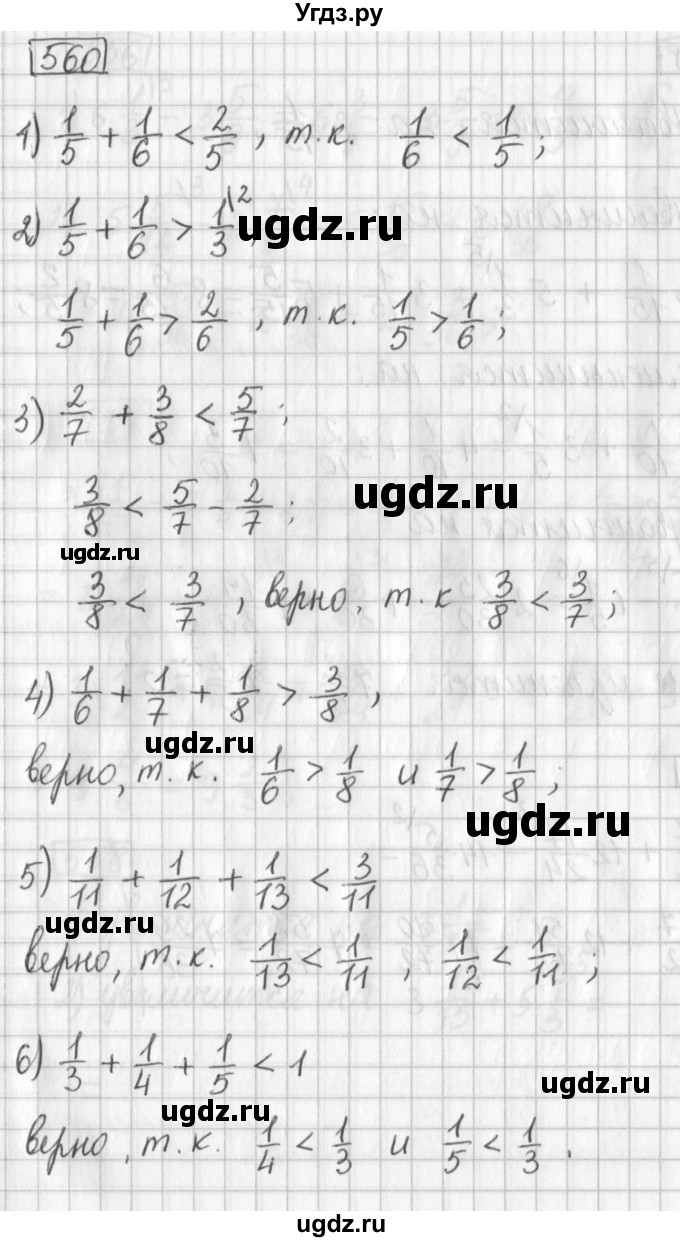 Угдз.ру
560
1) 1/5 + 1/6 < 2/5 , т.к. 1/6 < 1/5 ;
2) 1/5 + 1/6 > 1/3 \2
ugdz.ru
1/5 + 1/6 > 2/6 , т.к. 1/5 > 1/6 ;
3) 2/7 + 3/8 < 5/7 ;
3/8 < 5/7 - 2/7 ;
ugdz.ru
ugdz.ru
3/8 < 3/7 , верно, т.к 3/8 < 3/7 ;
4) 1/6 + 1/7 + 1/8 > 3/8 ,
ugdz.ru
верно, т.к. 1/6 > 1/8 и 1/7 > 1/8 ;
ugdz.ru
5) 1/11 + 1/12 + 1/13 < 3/11
ugdz.ru
верно, т.к. 1/13 < 1/11 , 1/12 < 1/11 ;
6) 1/3 + 1/4 + 1/5 < 1
ugdz.ru
ugdz.ru
верно, т.к. 1/4 < 1/3 и 1/5 < 1/3 .
ugdz.ru